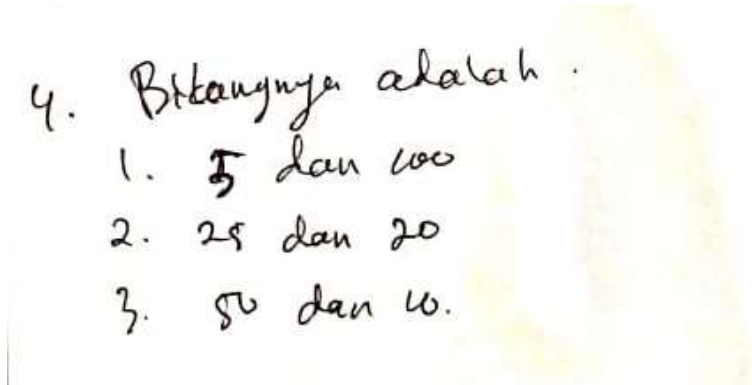 4. Bilangnya adalah.
1. 5 dan 100
2. 25 dan 20
3. 50 dan 10.